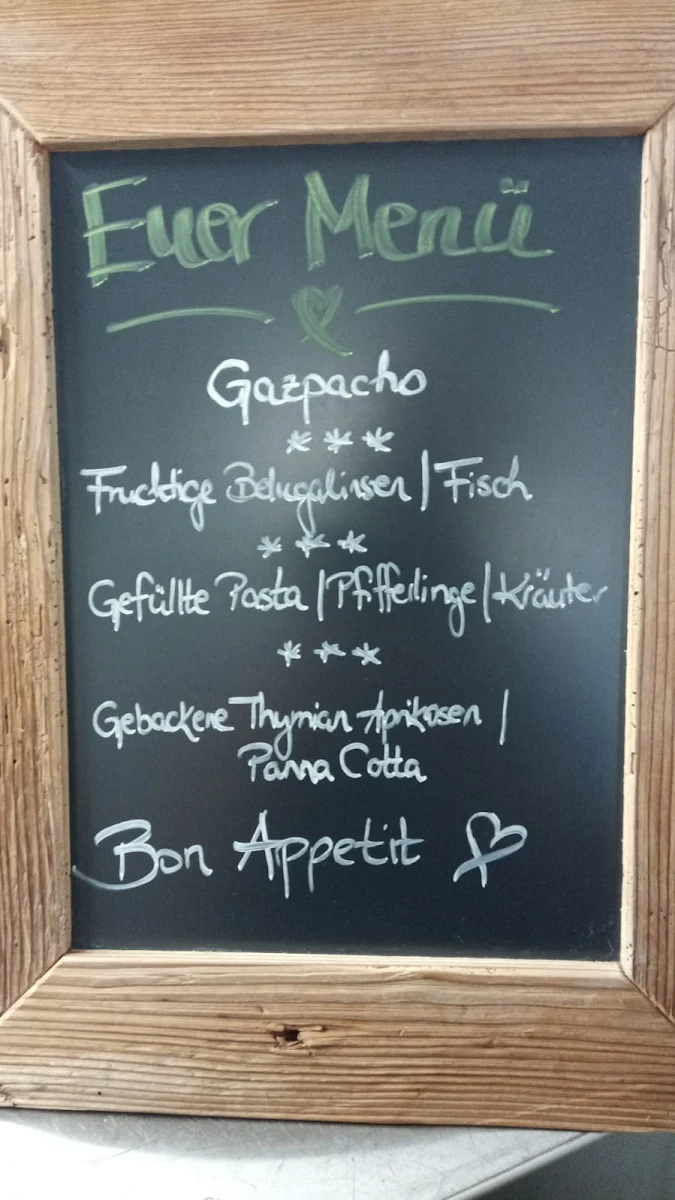 Euer Menü
Gazpacho
***
Fruchtige Belugalinsen | Fisch
***
Gefüllte Pasta | Pfifferlinge | Kräuter
***
Gebackene Thymian Aprikosen |
Panna Cotta
Bon Appetit